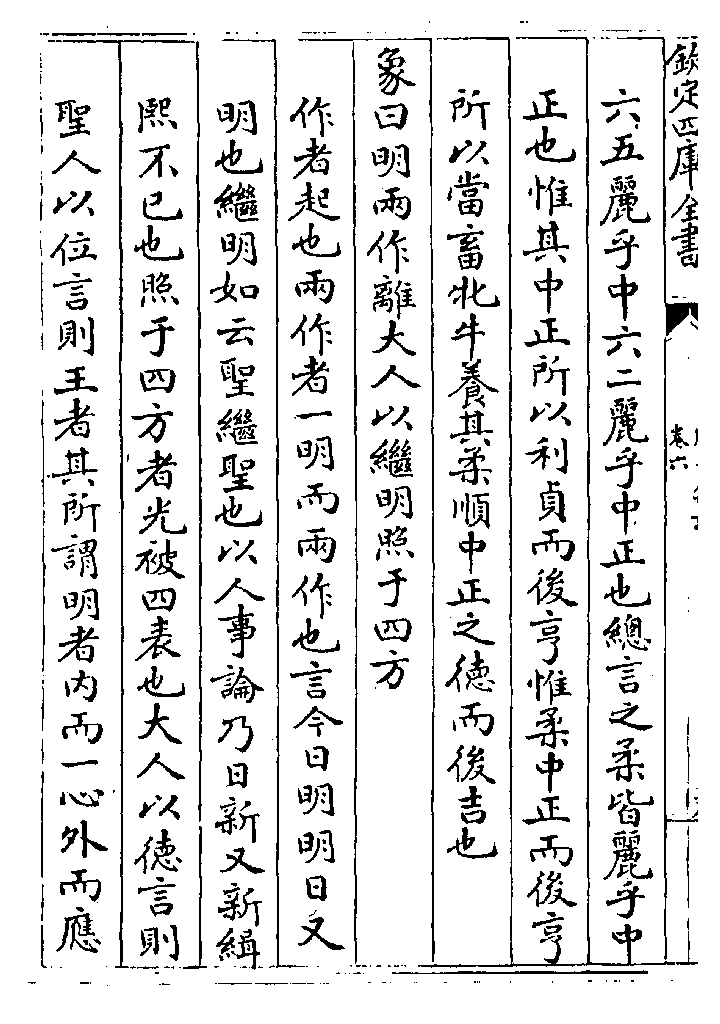 欽定四庫全書
卷六
六五麗乎中六二麗乎中正也總言之柔皆麗乎中
正也惟其中正所以利貞而後亨惟柔中正而後亨
所以當畜牝牛養其柔順中正之德而後吉也
象曰明兩作離大人以繼明照于四方
作者起也兩作者一明而兩作也言今日明明日又
明也繼明如云聖繼聖也以人事論乃日新又新緝
熙不已也照于四方者光被四表也大人以德言則
聖人以位言則王者其所謂明者内而一心外而應